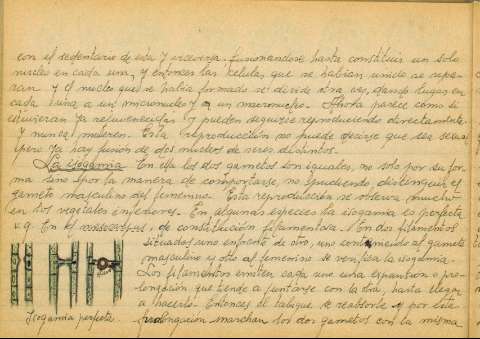 con el sedentario de esta y viceversa, fusionandose hasta constituir un solo
nucleo en cada una, y entonces las celulas que se habian unido se sepa-
ran y el nucleo que se habia formado se divide otra vez, dando lugar en
cada una a un micronucleo y a un macronucleo. Ahora parece como si
estuvieran ya rejuvenecidas y pueden seguirse reproduciendo directamente
y nunca mueren. Esta reproducción no puede decirse que sea sexual
pero ya hay fusión de dos nucleos de seres distintos.
La isogamia. En ella los dos gametos son iguales, no solo por su for-
ma sino por la manera de comportarse, no pudiendo distinguir el
gameto masculino del femenino. Esta reproducción se observa mucho
en los vegetales inferiores. En algunas especies la isogamia es perfecta
v.g. En el de constitución filamentosa. En dos filamentos
situados uno enfrente de otro, uno conteniendo al gameto
masculino y otro al femenino se verifica la isogamia.
Los filamentos emiten cada uno una expansión o pro-
longación que tiende a juntarse con la otra, hasta llegar
a hacerlo. Entonces el tabique se reabsorbe y por esta
prolongación marchan los dos gametos con la misma
Isogamia perfecta